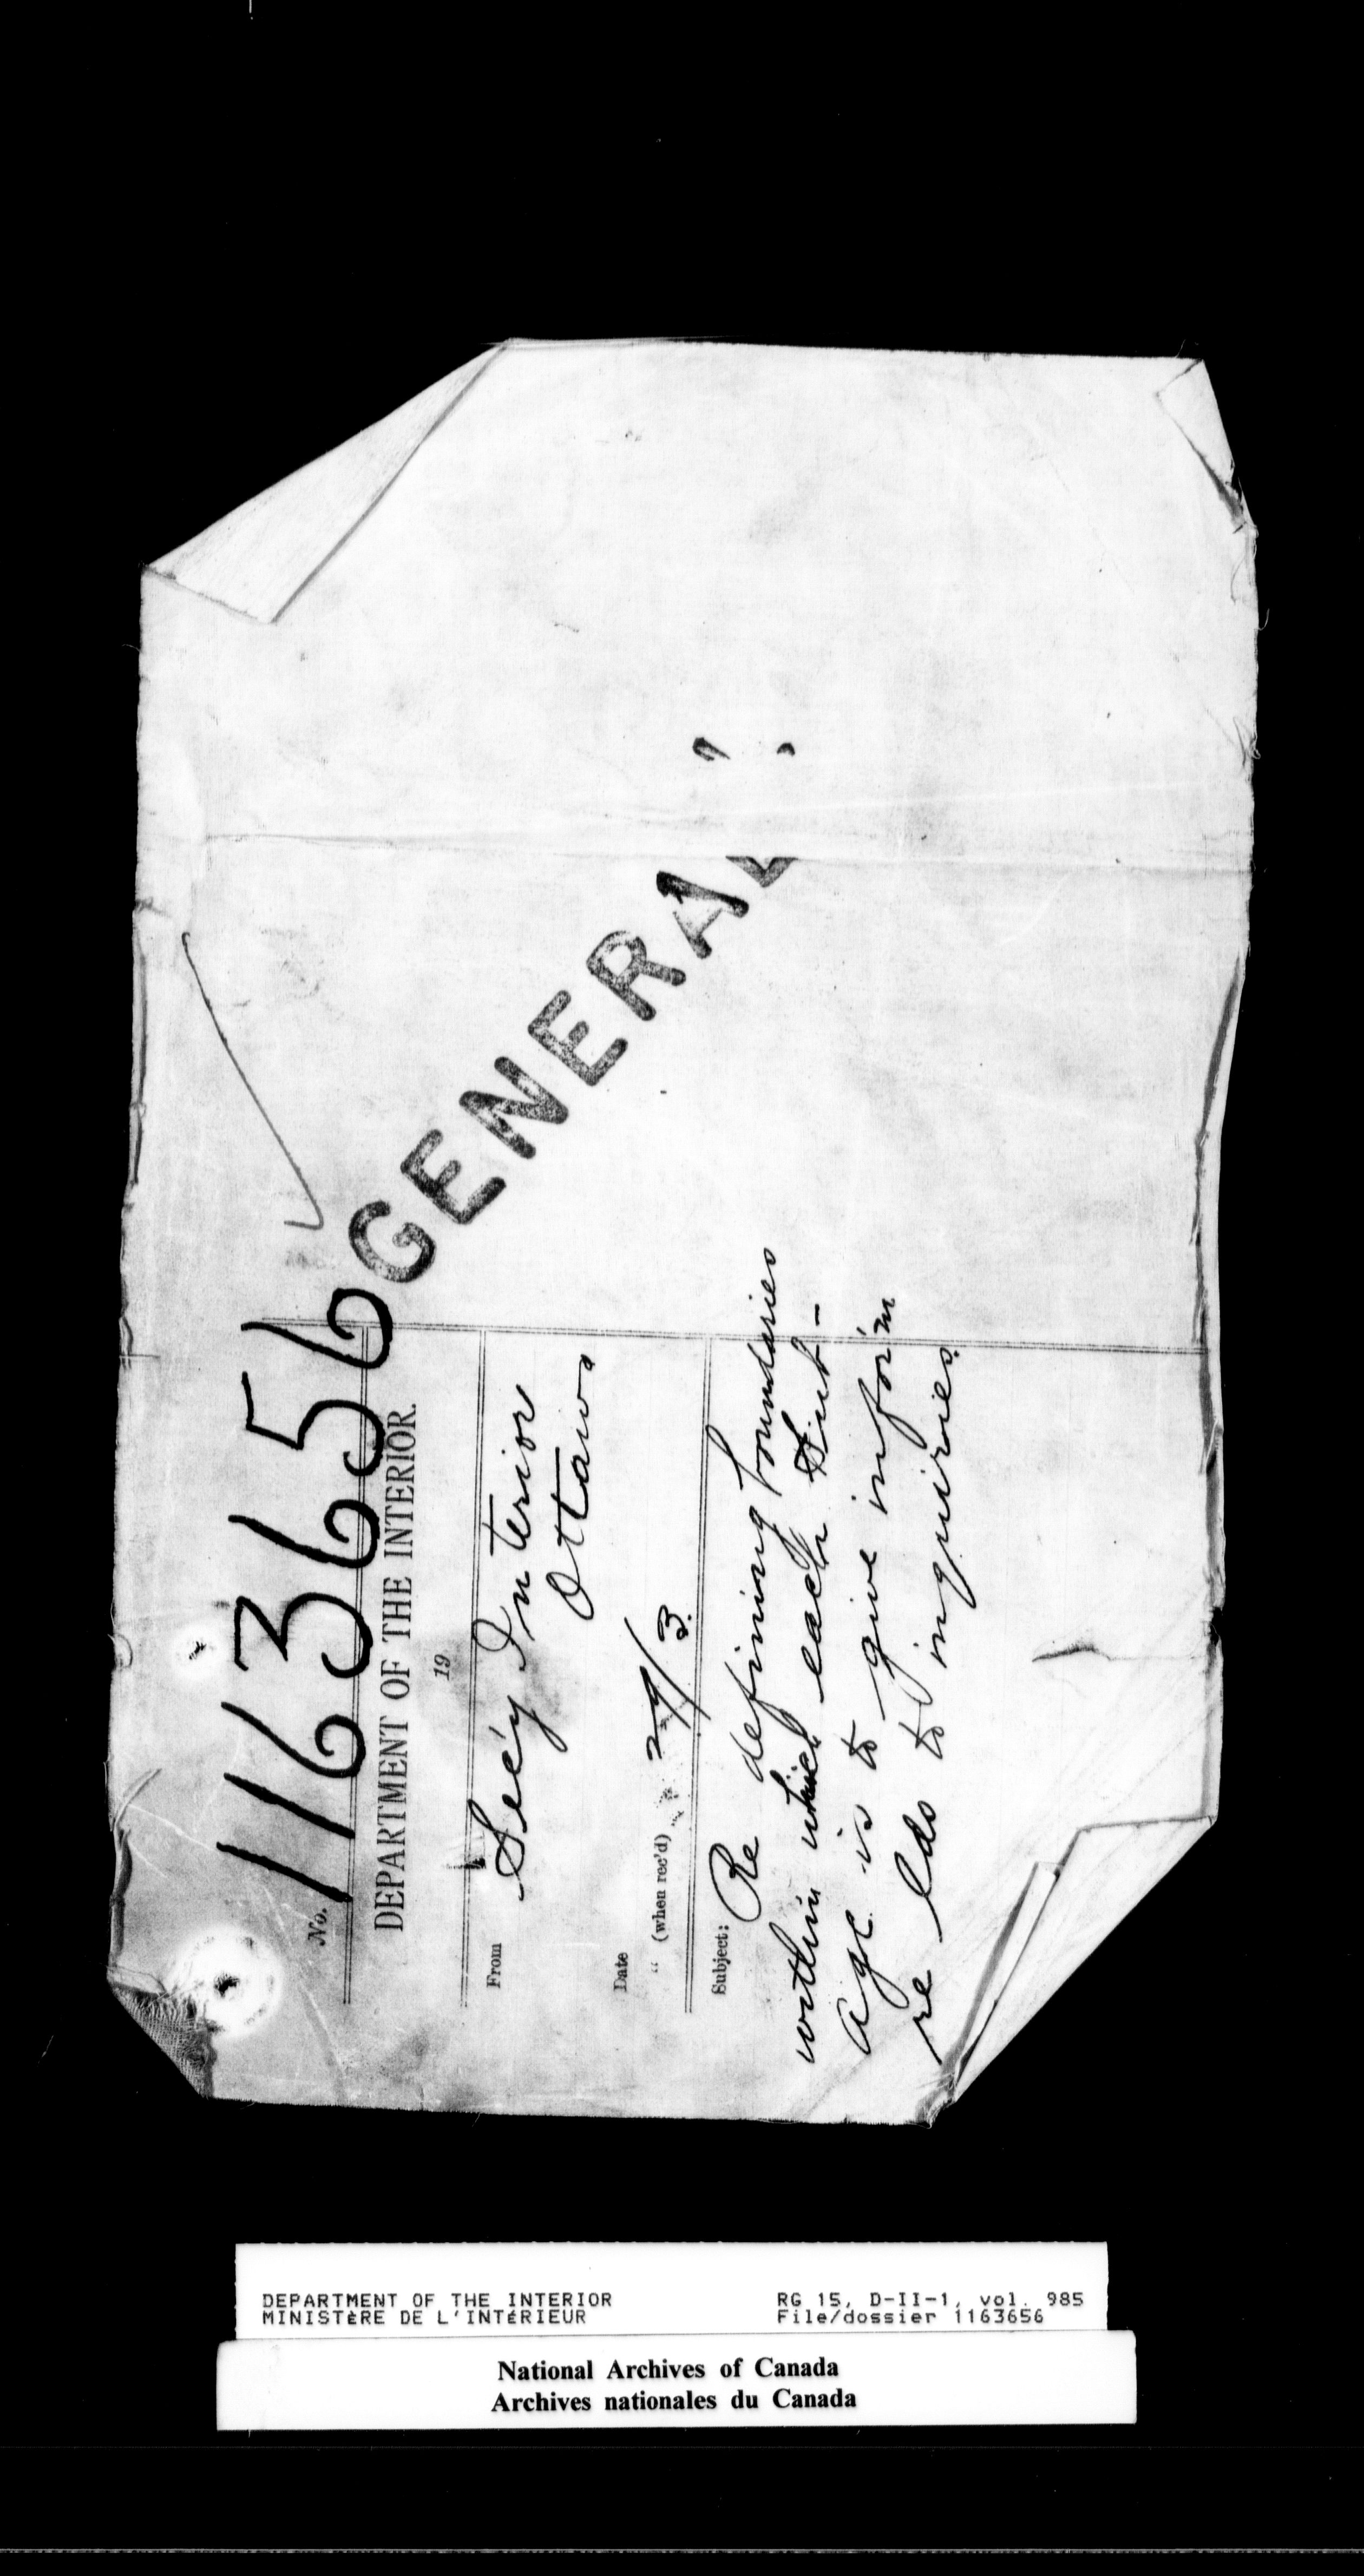 No. 1163656
DEPARTMENT OF THE INTERIOR.
19
From Sec'y Interior
Ottawa
Date
" (when rec'd) 29/3.
Subject: Re defining boundaries
within which each
agt. is to give infor'n
re lds to inquiries.
GENERAL
DEPARTMENT OF THE INTERIOR
MINISTÈRE DE L'INTÉRIEUR
RG 15, D-II-1, vol. 985
File/dossier 1163656
National Archives of Canada
Archives nationales du Canada